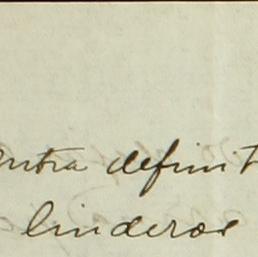 entra definit
linderos